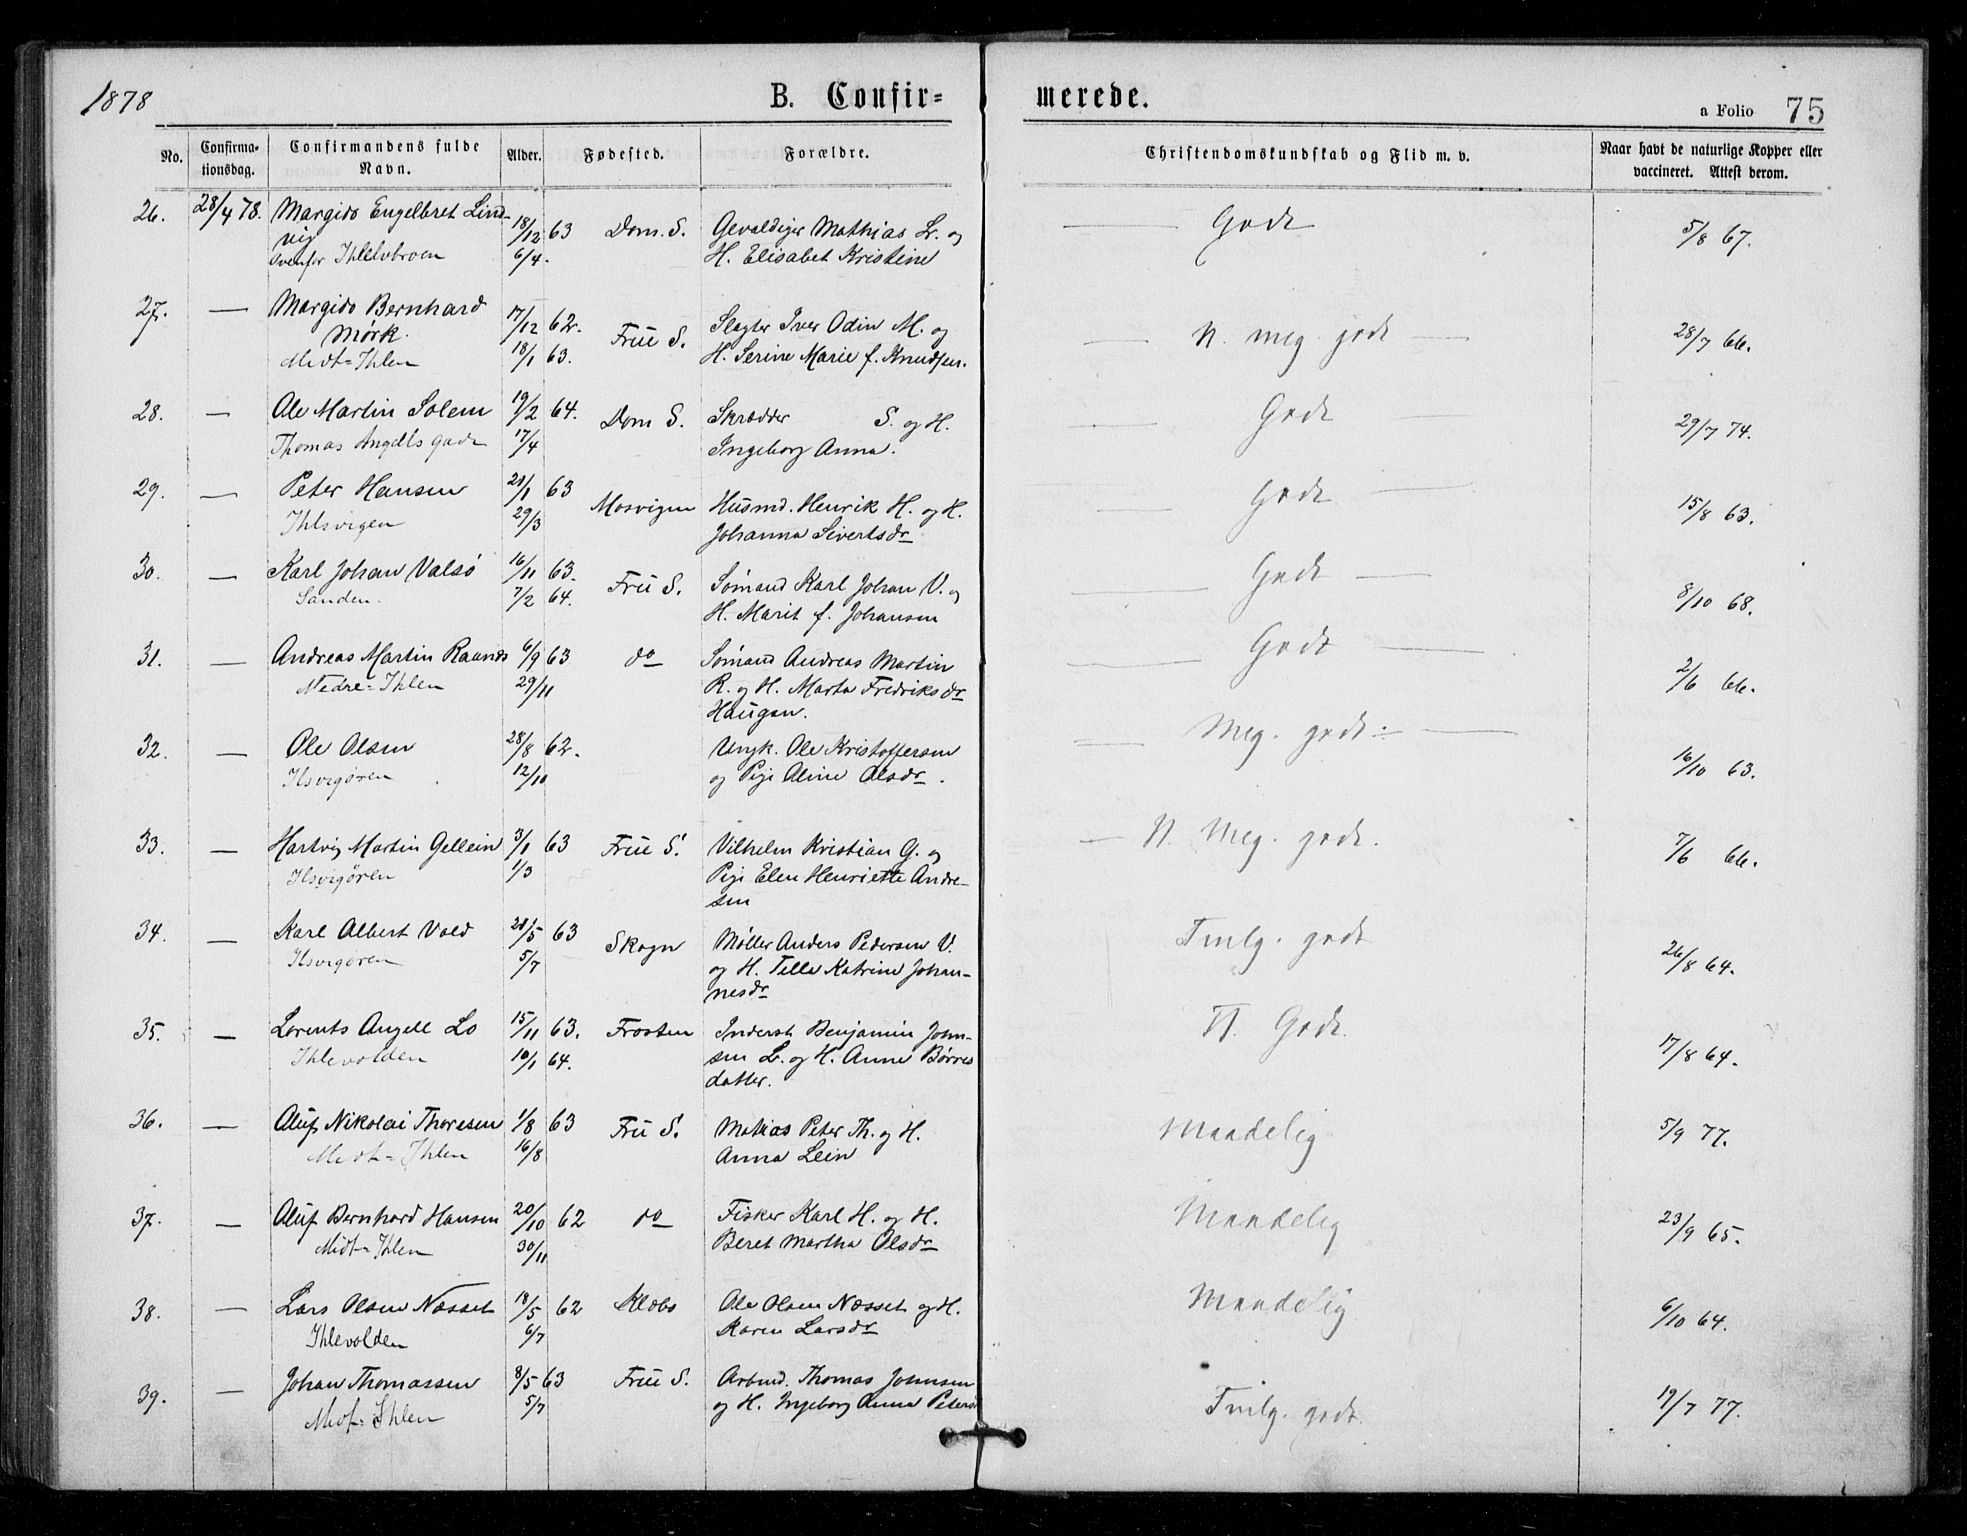 1878
B. Confir-
merede.
a Folio 75
No.
Confirma-
tionsdag.
Confirmandens fulde
Navn.
Alder.
Fødested.
Forældre.
Christendomskundskab og Flid m. v.
Naar havt de naturlige Kopper eller
vaccineret. Attest derom.
26. 28/4 78. Margido Engelbret Lind- 18/12 63 Dom. S. Gevaldiger Mathias L. og — Godt 5/8 67.
vig
ovenfor Ihlelvbroen 6/4. H. Elisabet Kristine
27. — Margido Bernhard 17/12 62. Frue S. Slagter Iver Odin M. og — N. meg. godt — 28/7 66.
Mørk.
Midt-Ihlen 18/1 63. H. Serine Marie f. Knudsen.
28. — Ole Martin Solem 19/2 64. Dom S. Skrædder S. og H. — Godt — 29/7 74.
Thomas Angells Gade 17/4 Ingeborg Anna.
29. — Peter Hansen 20/1 63 Mosvigen Husmd. Henrik H. og H. — Godt — 15/8 63.
Ihlsvigen 29/3 Johanna Sivertsdr
30. — Karl Johan Valsø 16/11 63. Fru S. Sømand Karl Johan V. og — Godt — 8/10 68.
Sanden. 7/2 64. H. Marit f. Johansen
31. — Andreas Martin Raanes 6/9 63 do Sømand Andreas Martin — Godt — 2/6 66.
Nedre-Ihlen 29/11 R. og H. Marta Fredriksdr
Haugan.
32. — Ole Olsen 28/8 62. Ungk. Ole Kristoffersen — Meg. godt — 16/10 63.
Ilsvigøren 12/10 og Pige Aline Olsdr.
33. — Hartvig Martin Gellein 3/1 63 Frue S. Vilhelm Kristian G. og — N. Meg. godt. 7/6 66.
Ilsvigøren 1/3 Pige Elen Henriette Andre-
sen
34. — Karl Albert Vold 20/5 63 Skogn Møller Anders Pedersen V. Tmlg. godt 26/8 64.
Ilsvigøren 5/7 og H. Telle Katrine Johan-
nesdr
35. — Lorents Angell Lo 15/11 63. Frosten Inderst Benjamin John- N. Godt. 17/8 64.
Ihlevolden 10/1 64. sen L. og H. Anne Børres
datter.
36. — Aluf Nikolai Thoresen 1/8 63 Fru S. Matias Peter Th. og H. Maadelig 5/9 77.
Midt-Ihlen 16/8 Anna Lein
37. — Aluf Bernhard Hansen 20/10 62 do Fisker Karl H. og H. Maadelig 23/9 65.
Midt-Ihlen 30/11 Beret Martha Olsdr
38. — Lars Olsen Næsset 18/5 62 Klæbo Ole Olsen Næsset og H. Maadelig 6/10 64.
Ihlevolden 6/7 Karen Larsdr
39. — Johan Thomassen 8/5 63 Frue S. Arbmd. Thomas Johnsen Tmlg. godt. 19/7 77.
Midt-Ihlen 5/7 og H. Ingeborg Anna Petersd